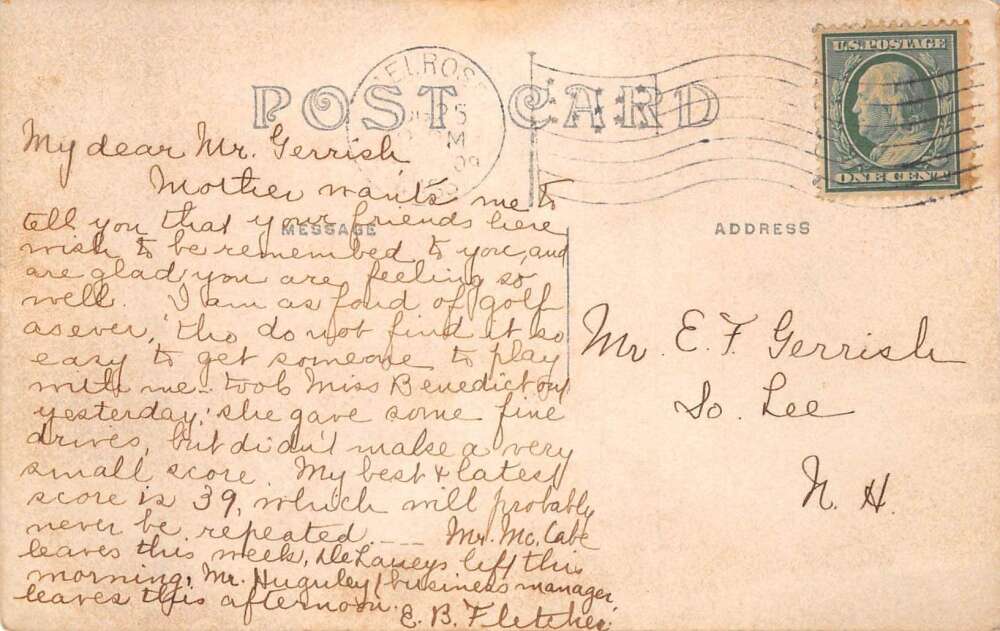 POST CARD
U.S. POSTAGE
ONE CENT
MELROSE
M
09
MESSAGE
ADDRESS
My dear Mr. Gerrish
Mother wants me to
tell you that your friends here
wish to be remembered to you, and
are glad you are feeling so
well. I am as fond of golf
as ever, tho do not find it so
easy to get someone to play
with me - took Miss Benedict out
yesterday; she gave some fine
drives, but didn't make a very
small score. My best & latest
score is 39, which will probably
never be repeated. _ _ Mr. McCabe
leaves this week, DeLaneys left this
morning, Mr. Huguley (business manager
leaves this afternoon.
E. B. Fletcher.
Mr. E. F. Gerrish
So. Lee
N. H.